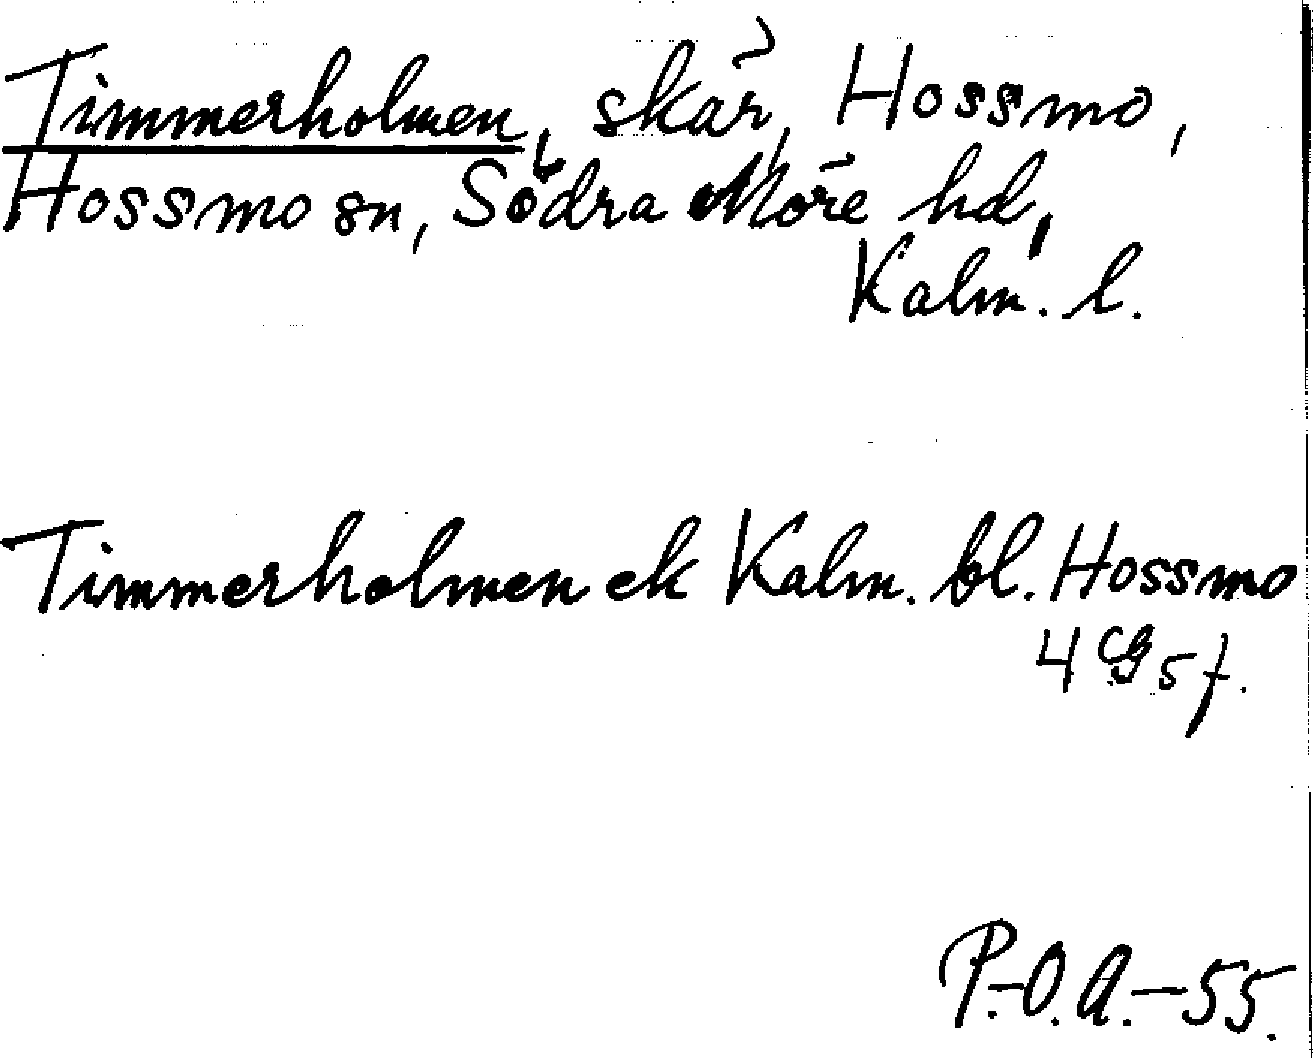 Timmerholmen, skär, Hossmo,
Hossmo sn, Södra Möre hd,
Kalm. l.
Timmerholmen ek Kalm. bl. Hossmo
4 5 f.
P.-O.A.-55.